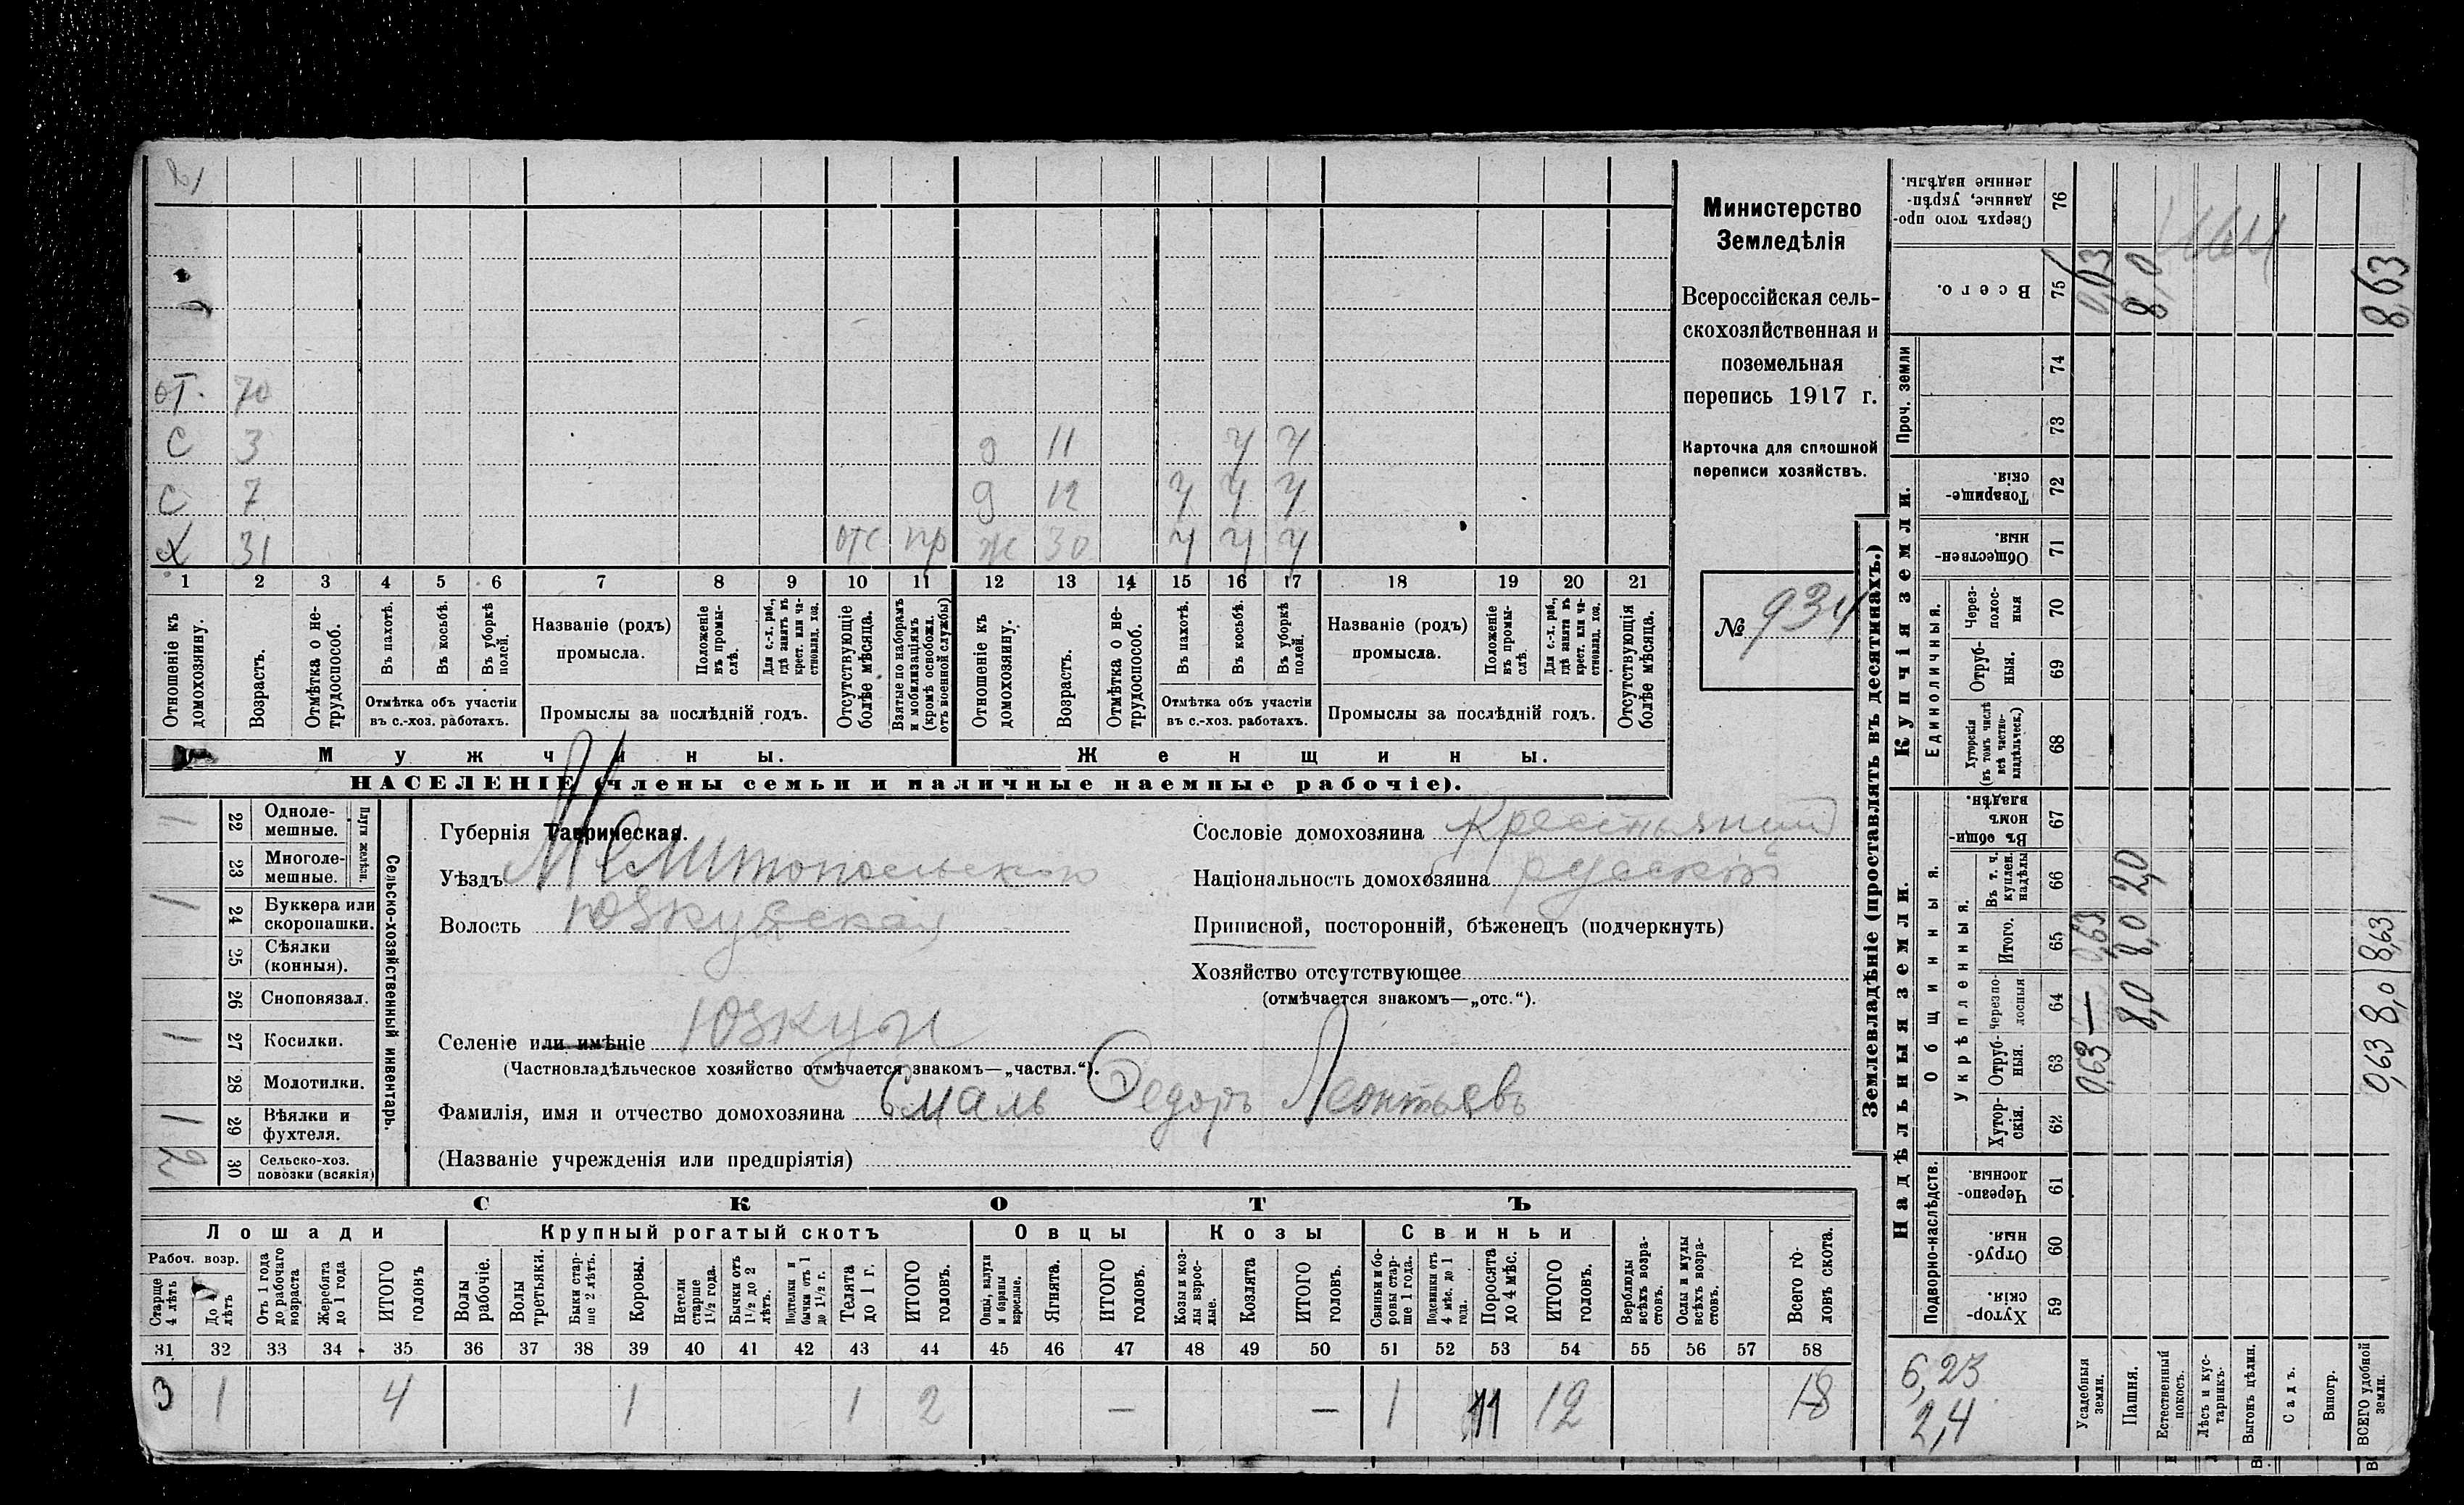 Министерство
Земледѣлія
Всероссійская сель-
скохозяйственная и
поземельная
перепись 1917 г.
Карточка для сплошной
переписи хозяйствъ.
№ 934
от. 70
с 3 д 11 ч ч
с 7 д 12 ч ч ч
х 31 отс пр ж 30 ч ч ч
1 2 3 4 5 6 7 8 9 10 11 12 13 14 15 16 17 18 19 20 21
Отношеніе къ домохозяину.
Возрастъ.
Отмѣтка о не-трудоспособ.
Въ пахотѣ.
Въ косьбѣ.
Въ уборкѣ полей.
Отмѣтка объ участіи
въ с.-хоз. работахъ.
Названіе (родъ)
промысла.
Положеніе въ промы-слѣ.
Для с.-х. раб., гдѣ занятъ въ крест. или ча-стновлад. хоз.
Промыслы за послѣдній годъ.
Отсутствующіе болѣе мѣсяца.
Взятые по наборамъ и мобилизаціямъ (кромѣ освобожд. отъ военной службы)
Отношеніе къ домохозяину.
Возрастъ.
Отмѣтка о не-трудоспособ.
Въ пахотѣ.
Въ косьбѣ.
Въ уборкѣ полей.
Отмѣтка объ участіи
въ с.-хоз. работахъ.
Названіе (родъ)
промысла.
Положеніе въ промы-слѣ.
Для с.-х. раб., гдѣ занята въ крест. или ча-стновлад. хоз.
Промыслы за послѣдній годъ.
Отсутствующія болѣе мѣсяца.
Мужчины.
Женщины.
НАСЕЛЕНІЕ (члены семьи и наличные наемные рабочіе).
Сельско-хозяйственный инвентарь.
Плуги желѣзн.
1 22 Одноле-мешные.
23 Многоле-мешные.
1 24 Буккера или скоропашки.
25 Сѣялки (конныя).
26 Сноповязал.
1 27 Косилки.
28 Молотилки.
1 29 Вѣялки и фухтеля.
2 30 Сельско-хоз. повозки (всякія)
Губернія Таврическая.
Уѣздъ Мелитопольскій
Волость Юзкуйская
Селеніе или имѣніе Юзкуи
(Частновладѣльческое хозяйство отмѣчается знакомъ—„частвл.“).
Фамилія, имя и отчество домохозяина Смаль Федоръ Леонтьевъ
(Названіе учрежденія или предпріятія)
Сословіе домохозяина Крестьянинъ
Національность домохозяина русскій
Приписной, посторонній, бѣженецъ (подчеркнуть)
Хозяйство отсутствующее
(отмѣчается знакомъ—„отс.“).
СКОТЪ
Лошади
Крупный рогатый скотъ
Овцы
Козы
Свиньи
Рабоч. возр.
Старше 4 лѣтъ
До лѣтъ
Отъ 1 года до рабочаго возраста
Жеребята до 1 года
ИТОГО головъ
Волы рабочіе.
Волы третьяки.
Быки стар-ше 2 лѣтъ.
Коровы.
Нетели старше 1½ года.
Бычки отъ 1½ до 2 лѣтъ.
Подтелки и бычки отъ 1 до 1½ г.
Телята до 1 г.
ИТОГО головъ.
Овцы, валухи и бараны взрослые.
Ягнята.
ИТОГО головъ.
Козы и коз-лы взрос-лые.
Козлята
ИТОГО головъ.
Свиньи и бо-ровы стар-ше 1 года.
Подсвинки отъ 4 мѣс. до 1 года.
Поросята до 4 мѣс.
ИТОГО головъ.
Верблюды всѣхъ возра-стовъ.
Ослы и мулы всѣхъ возра-стовъ.
Всего го-ловъ скота.
31 32 33 34 35 36 37 38 39 40 41 42 43 44 45 46 47 48 49 50 51 52 53 54 55 56 57 58
3 1 4 1 1 2 — — 1 11 12 18
Землевладѣніе (проставлять въ десятинахъ.)
Надѣльныя земли.
Купчія земли.
Проч. земли
Подворно-наслѣдств.
Общинныя.
Укрѣпленныя.
Единоличныя.
Сверхъ того про-данные, укрѣп-ленные надѣлы. 76
Всего. 75 0,63 8,0 8,63
74
73
Товарище-скія. 72
Обществен-ныя. 71
Через-полос-ныя 70
Отруб-ныя. 69
Хуторскія (въ томъ числѣ всѣ частно-владѣльческ.) 68
Въ общин-номъ владѣн. 67
Въ т. ч. куплен. надѣлы 66 2,0
Итого. 65 0,63 8,0 8,63
Черезпо-лосныя 64 — 8,0 8,0
Отруб-ныя. 63 0,63 0,63
Хутор-скія. 62
Черезпо-лосныя. 61
Отруб-ныя. 60
Хутор-скія. 59
6,23
2,4
Усадебныя земли.
Пашня.
Естественный покосъ.
Лѣсъ и кус-тарникъ.
Выгонъ цѣлин.
Садъ.
Виногр.
ВСЕГО удобной земли.